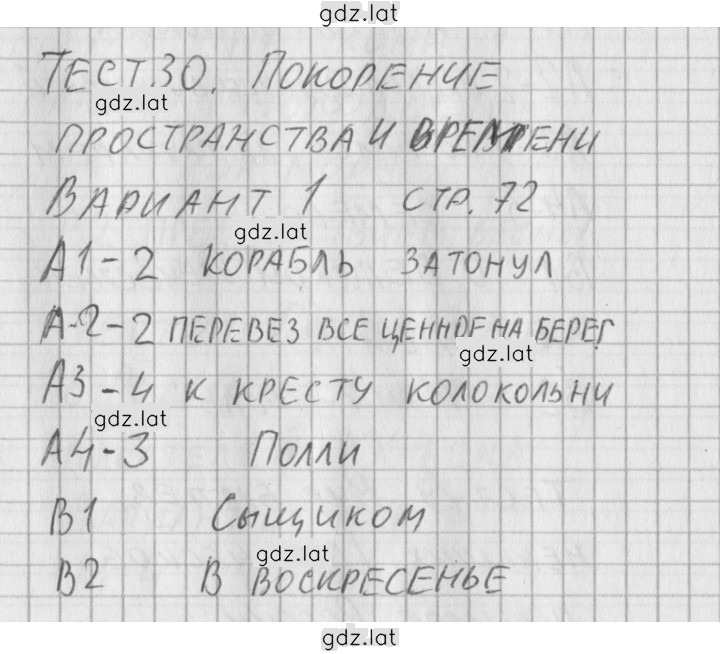 gdz.lat
ТЕСТ.30. ПОКОРЕНИЕ
gdz.lat
ПРОСТРАНСТВА И ВРЕМЕНИ
ВАРИАНТ 1 СТР. 72
gdz.lat
А1-2 КОРАБЛЬ ЗАТОНУЛ
А-2-2 ПЕРЕВЕЗ ВСЕ ЦЕННОЕ НА БЕРЕГ
gdz.lat
А3-4 К КРЕСТУ КОЛОКОЛЬНИ
gdz.lat
А4-3 ПОЛЛИ
В1 СЫЩИКОМ
gdz.lat
В2 В ВОСКРЕСЕНЬЕ
gdz.lat